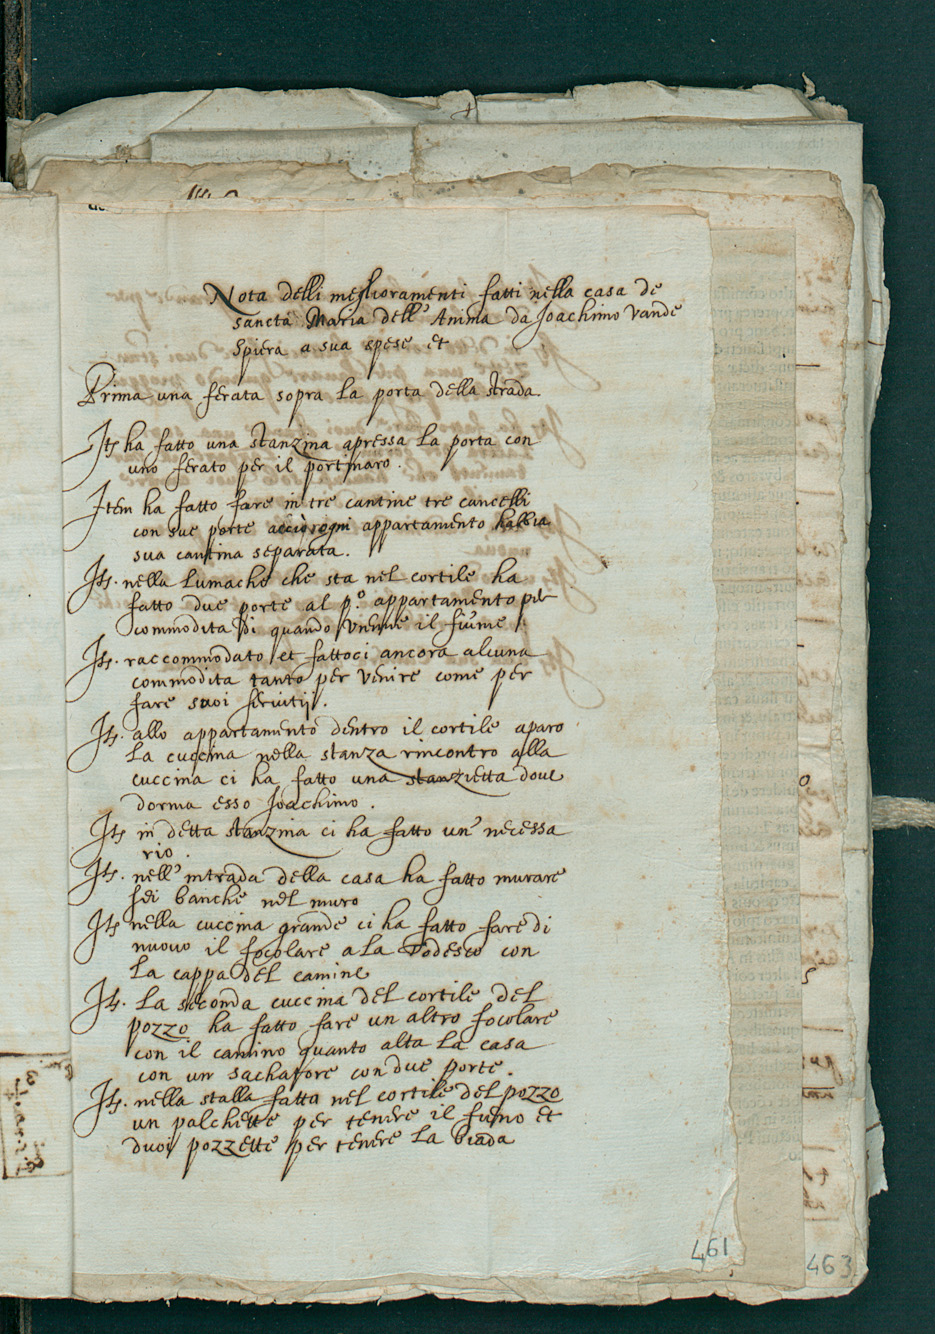 Nota delli meglioramenti fatti nella casa de
sancta Maria dell' Anima da Joachimo Vande
Spiera a sua spese et
Prima una ferata sopra la porta della strada
Itē ha fatto una stanzina apressa la porta con
uno ferato per il portinaro.
Item ha fatto fare in tre cantine tre cancelli
con sue porte acciò ogni appartamento habbia
sua cantina separata.
Itē. nella Lumache che sta nel cortile ha
fatto due porte al p.º appartamento per
commodita di quando venne il fiume.
Itē. raccommodato et fattoci ancora alcuna
commodita tanto per venire come per
fare suoi servitij.
Itē. allo appartamento dentro il cortile aparo
la cuccina nella stanza rincontro alla
cuccina ci ha fatto una stanzietta dove
dorma esso Joachimo.
Itē in detta stanzina ci ha fatto un' necessa
rio.
Itē. nell' intrada della casa ha fatto murare
sei banche nel muro
Itē nella cuccina grande ci ha fatto fare di
nuovo il focolare a la todesco con
la cappa del camine
Itē. La seconda cuccina del cortile del
pozzo ha fatto fare un altro focolare
con il camino quanto alta la casa
con un sachatore con due porte.
Itē. nella stalla fatta nel cortile del pozzo
un palchette per tenere il fieno et
duoi pozzette per tenere la biada
461
463